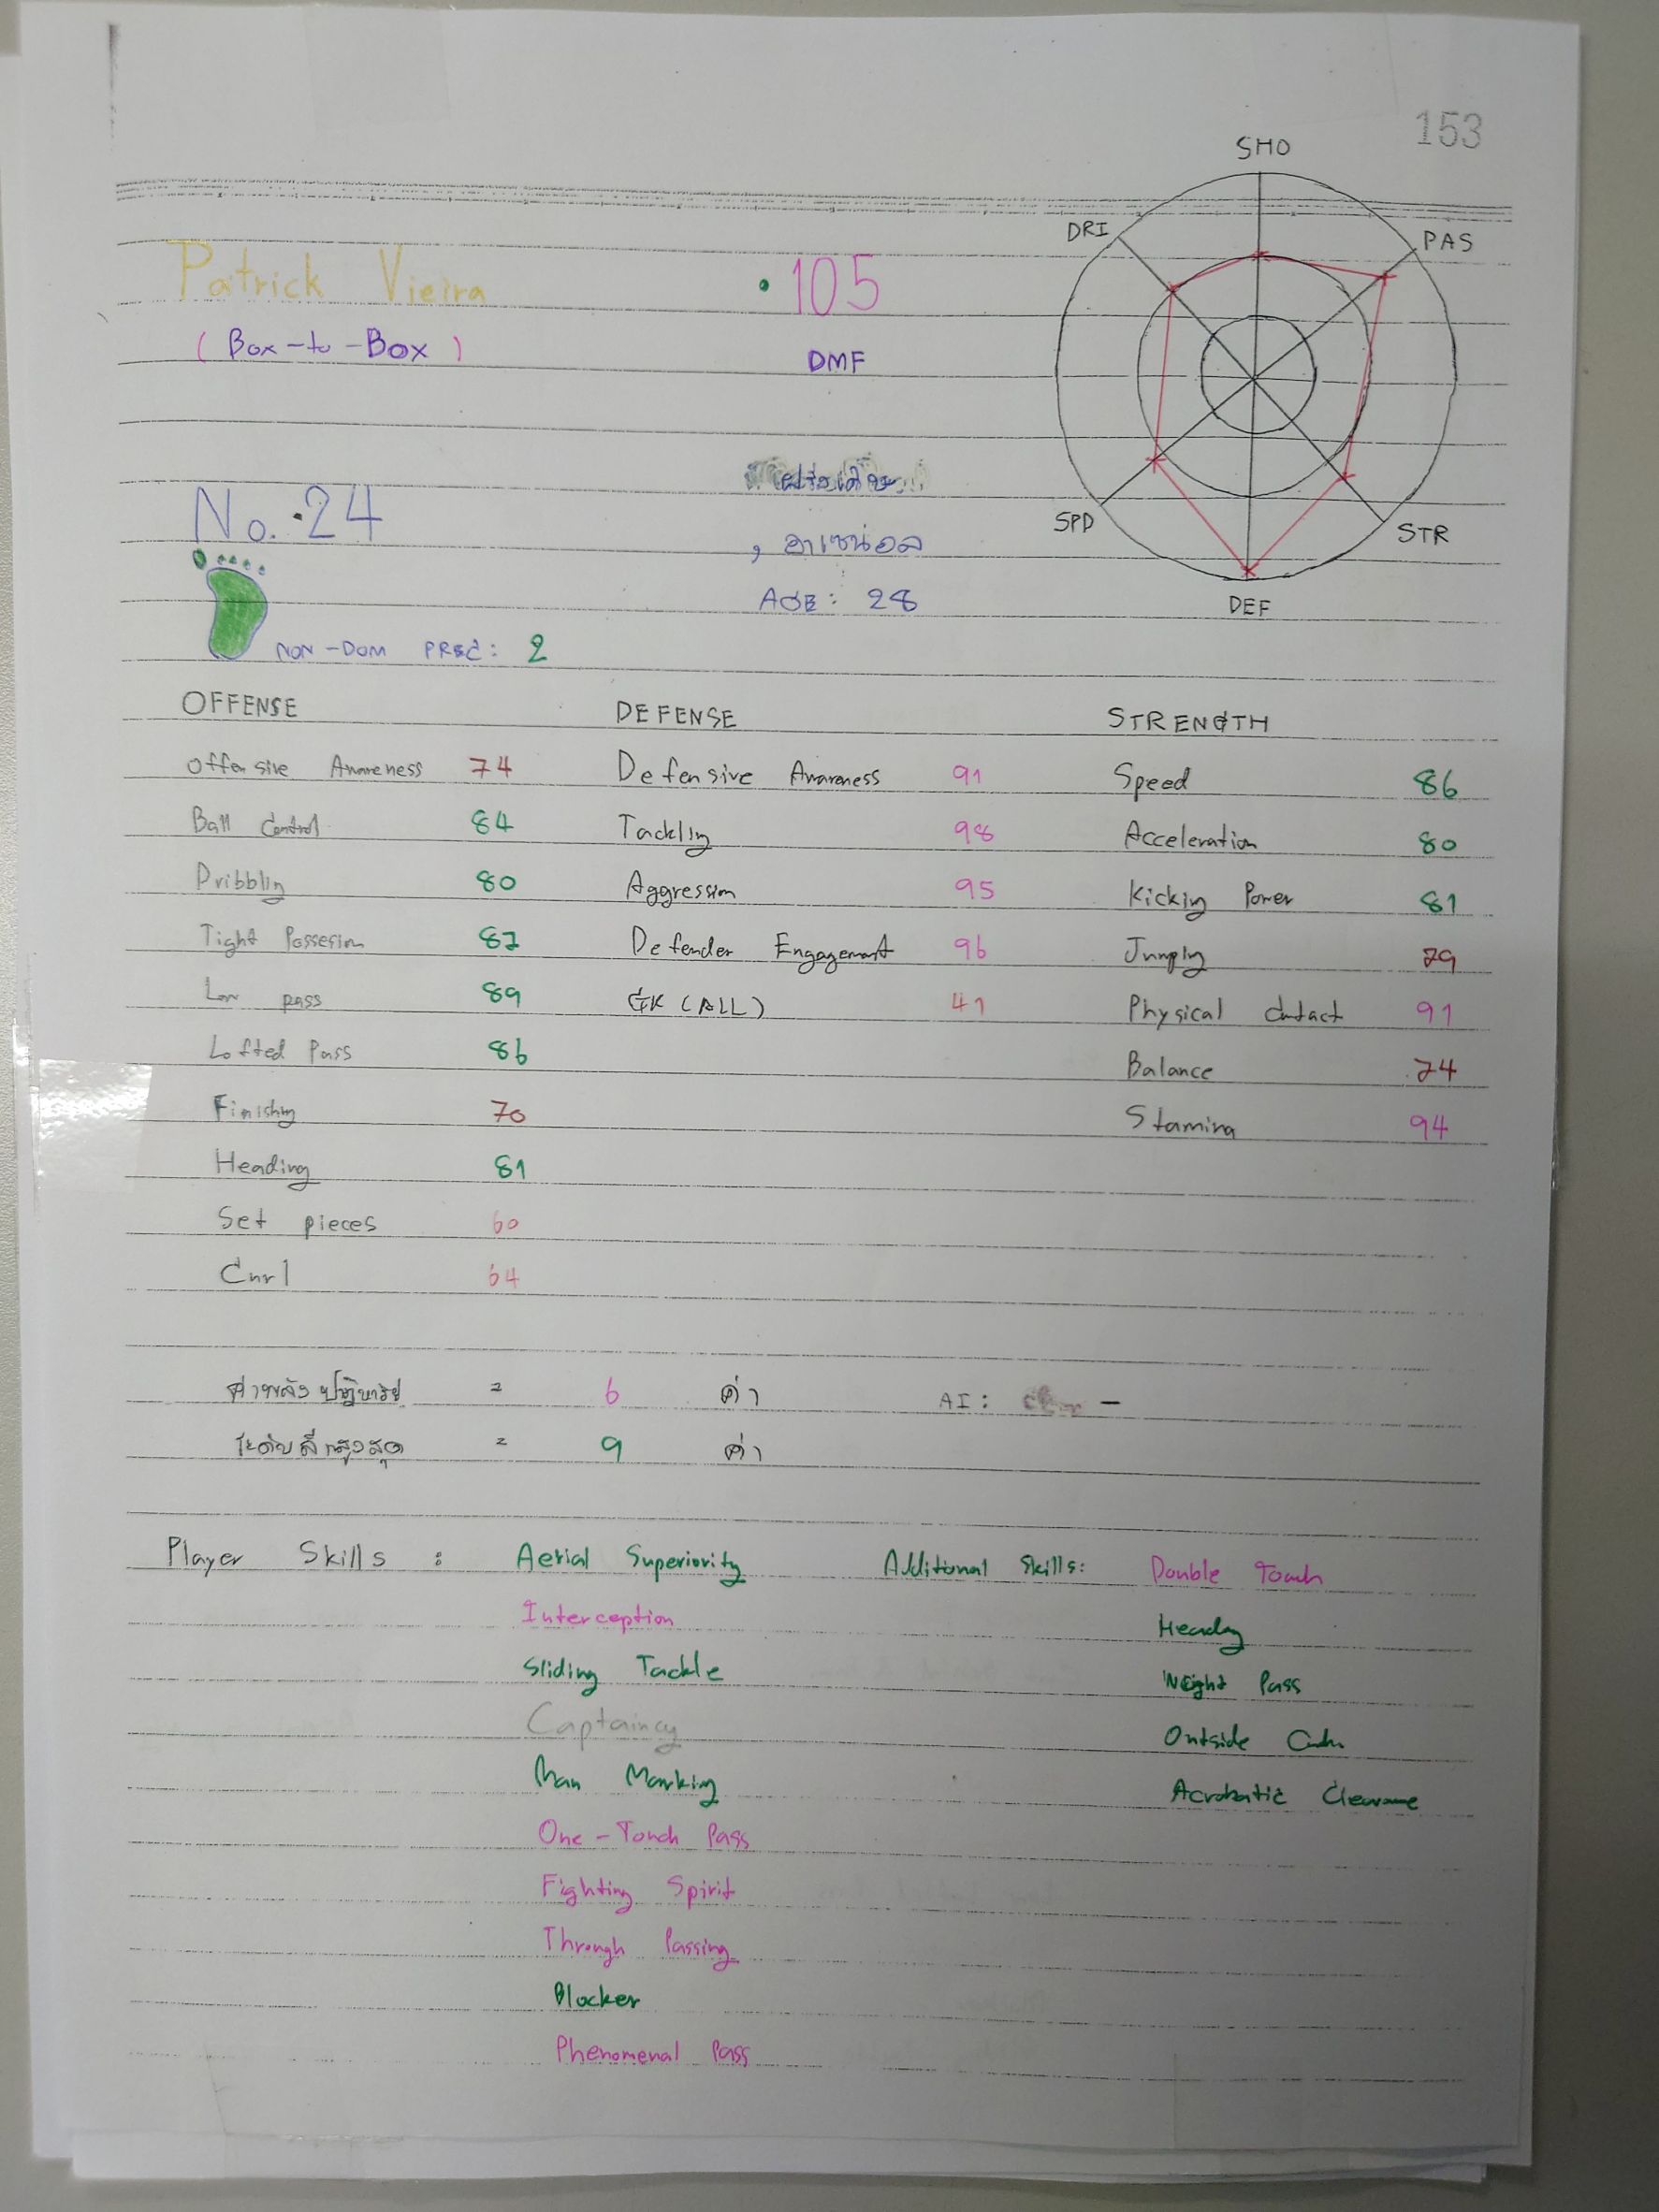 153
SHO
DRI
PAS
SPD
STR
DEF
Patrick Vieira
• 105
(Box-to-Box)
DMF
No. 24
ฝรั่งเศส
, อาเซน่อล
AGE: 28
NON-DOM PREC: 2
OFFENSE DEFENSE STRENGTH
Offensive Awareness 74 Defensive Awareness 91 Speed 86
Ball Control 84 Tackling 98 Acceleration 80
Dribbling 80 Aggression 95 Kicking Power 81
Tight Possesion 87 Defender Engagement 96 Jumping 79
Low pass 89 GK (ALL) 41 Physical Contact 91
Lofted Pass 86 Balance 74
Finishing 70 Stamina 94
Heading 81
Set pieces 60
Curl 64
ค่าพลังปฏิหาริย์ = 6 ค่า AI: –
ระดับสีสูงสุด = 9 ค่า
Player Skills : Aerial Superiority Additional Skills: Double Touch
Interception Heading
Sliding Tackle Weight Pass
Captaincy Outside Curler
Man Marking Acrobatic Clearance
One-Touch Pass
Fighting Spirit
Through Passing
Blocker
Phenomenal Pass